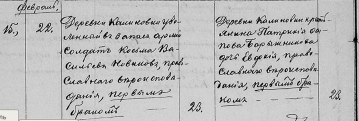 Февраль.
15., 22.
Деревни Калиновки уво-
ленный въ запасъ арміи
солдатъ Косьма Ва-
сильевъ Новиковъ, право-
славнаго вѣроисповѣ-
данія, первымъ
бракомъ 23.
Деревни Калиновки кресть-
янина
дочь Евдокія, право-
славнаго вѣроисповѣ-
данія, первымъ бра-
комъ 23.